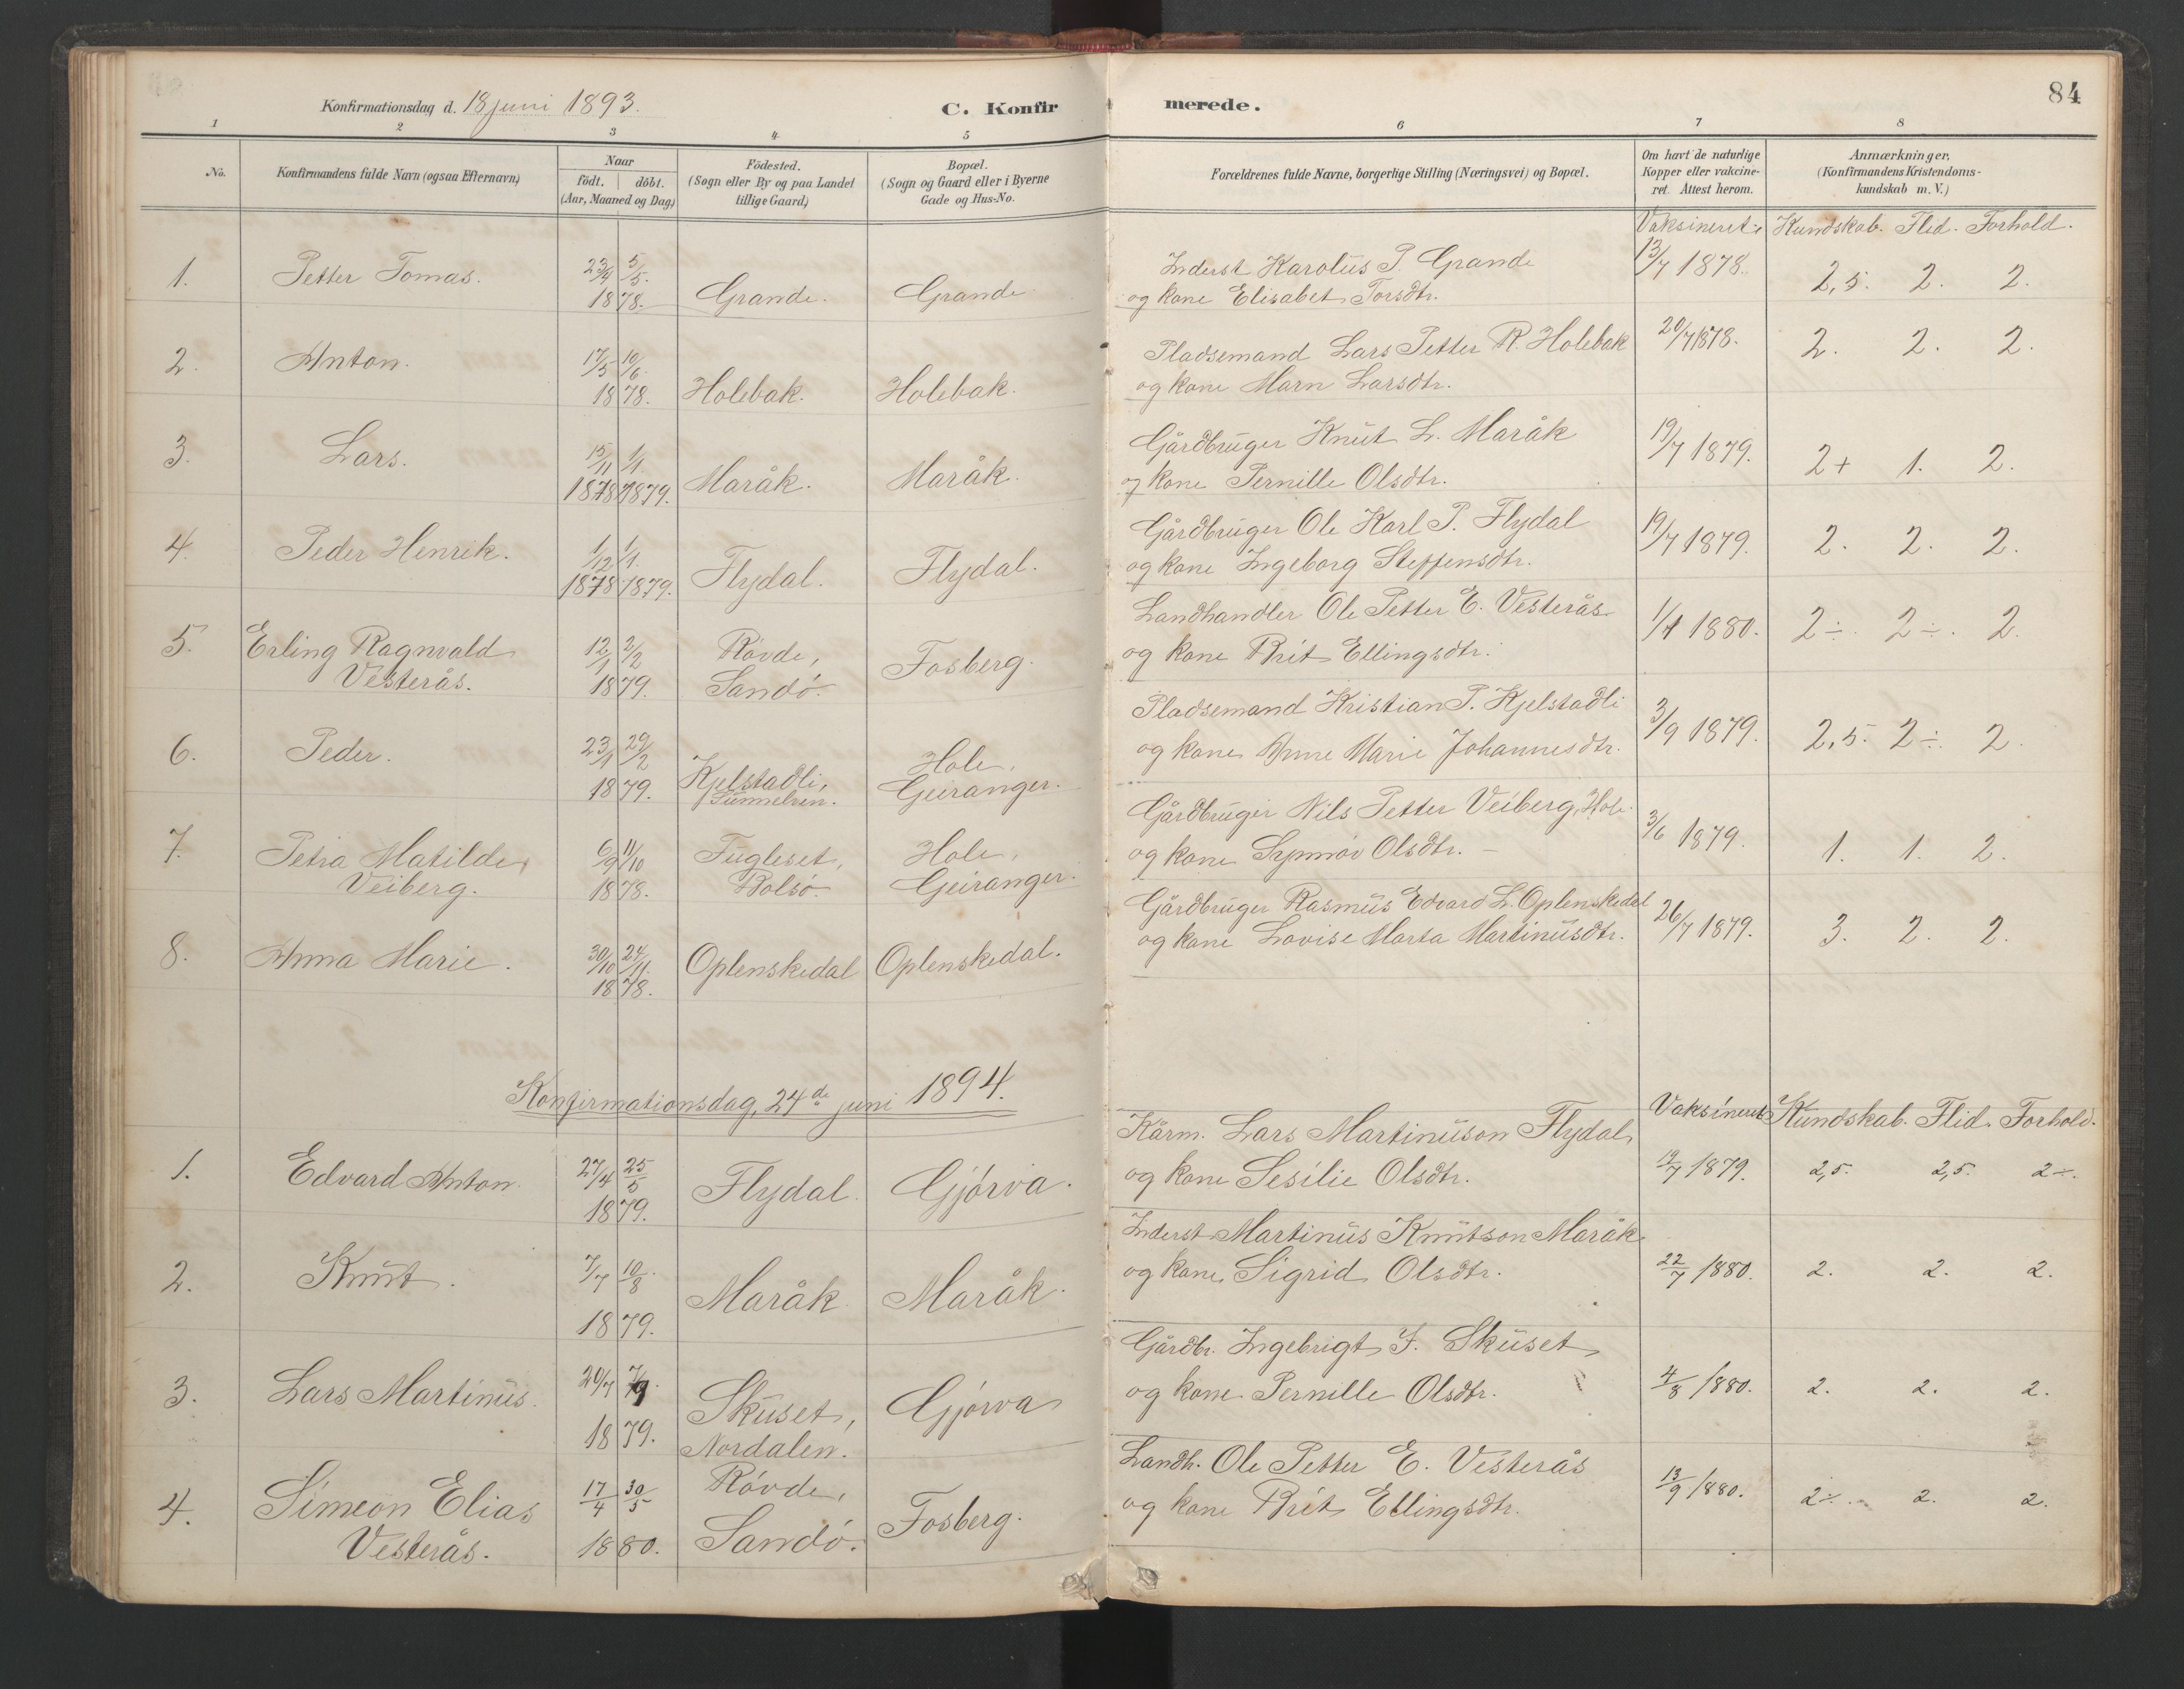 Konfirmationsdag d. 18 juni 1893.
C. Konfirmerede.
84
1 2 3 4 5 6 7 8
No.
Konfirmandens fulde Navn (ogsaa Efternavn)
Naar
födt. | döbt.
(Aar, Maaned og Dag)
Födested.
(Sogn eller By og paa Landet
tillige Gaard)
Bopæl.
(Sogn og Gaard eller i Byerne
Gade og Hus-No.
Forældrenes fulde Navne, borgerlige Stilling (Næringsvei) og Bopæl.
Om havt de naturlige
Kopper eller vakcine-
ret. Attest herom.
Anmærkninger,
(Konfirmandens Kristendoms-
kundskab m. V.)
Vaksineret: Kundskab. Flid. Forhold.
1. Petter Tomas. 23/4 5/5. 1878. Grande. Grande Inderst Karolus P. Grande 13/7 1878. 2,5. 2. 2.
og kone Elisabet Torsdtr.
2. Anton. 17/5 10/6. 1878. Holebak. Holebak. Pladsemand Lars Petter R. Holebak 20/7 1878. 2. 2. 2.
og kone Marn Larsdtr.
3. Lars. 15/11 1/1. 1878 1879. Maråk. Maråk. Gårdbruger Knut L. Maråk 19/7 1879. 2+ 1. 2.
og kone Pernille Olsdtr.
4. Peder Henrik. 1/12 1/1. 1878 1879. Flydal. Flydal. Gårdbruger Ole Karl P. Flydal 19/7 1879. 2. 2. 2.
og kone Ingeborg Steffensdtr.
5. Erling Ragnvald 12/1 2/2 Rövde, Fosberg. Landhandler Ole Petter E. Vesterås 1880. 2÷. 2÷. 2.
Vesterås. 1879. Sandö. og kone Brit Ellingsdtr.
6. Peder. 23/1 29/2 1879. Kjelstadli, Hole, Pladsemand Kristian P. Kjelstadli 3/9 1879. 2,5. 2÷. 2.
Sunnelven. Geiranger. og kone Anne Marie Johannesdtr.
7. Petra Matilde 6/9 11/10 Fugleset, Hole, Gårdbruger Nils Petter Veiberg, Hole 3/6 1879. 1. 1. 2.
Veiberg. 1878. Bolsö Geiranger. og kone Synnöv Olsdtr. –
8. Anna Marie. 30/10 24/11. 1878. Oplenskedal Oplenskedal. Gårdbruger Rasmus Edvard L. Oplenskedal 26/7 1879. 3. 2. 2.
og kone Lovise Marta Martinusdtr.
Konfirmationsdag, 24de juni 1894.
Vaksineret Kundskab. Flid. Forhold.
1. Edvard Anton. 27/4 25/5 1879. Flydal. Gjörva. Kårm. Lars Martinuson Flydal 19/7 1879. 2,5. 2,5. 2÷.
og kone Sesilie Olsdtr.
2. Knut. 7/7 10/8. 1879. Maråk. Maråk. Inderst Martinus Knutson Maråk 22/7 1880. 2. 2. 2.
og kone Sigrid Olsdtr.
3. Lars Martinus. 20/7 7/9. 1879. Skuset, Gjörva Gårdbr. Ingebrigt I. Skuset 4/8 1880. 2. 2. 2.
Nordalen. og kone Pernille Olsdtr.
4. Simeon Elias 17/4 30/5 Rövde, Fosberg. Landh. Ole Petter E. Vesterås 13/9 1880. 2÷. 2. 2.
Vesterås. 1880. Sandö. og kone Brit Ellingsdtr.